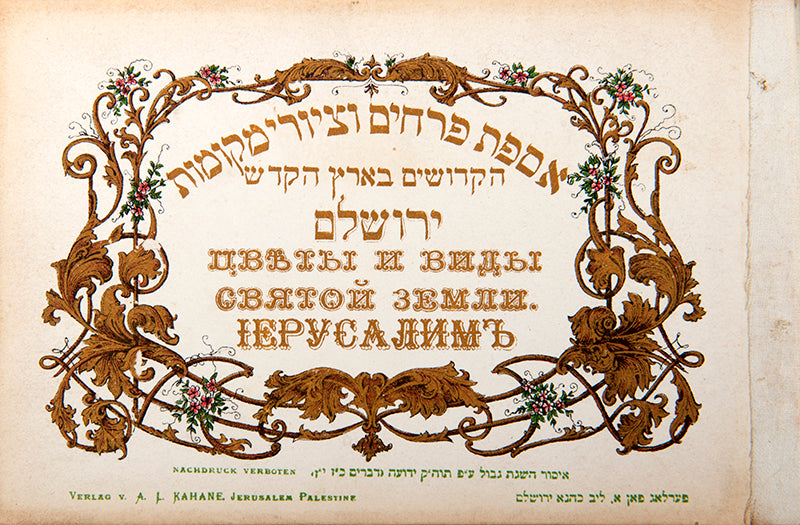 אספת פרחים וציורי מקומות
הקדושים בארץ הקדש
ירושלם
ЦВѢТЫ И ВИДЫ
СВЯТОЙ ЗЕМЛИ.
ІЕРУСАЛИМЪ
NACHDRUCK VERBOTEN איסור השגת גבול ע״פ תוה״ק ידועה (דברים כ״ז י״ז)
VERLAG V. A. L. KAHANE. JERUSALEM PALESTINE פערלאג פאן א. ליב כהנא ירושלם